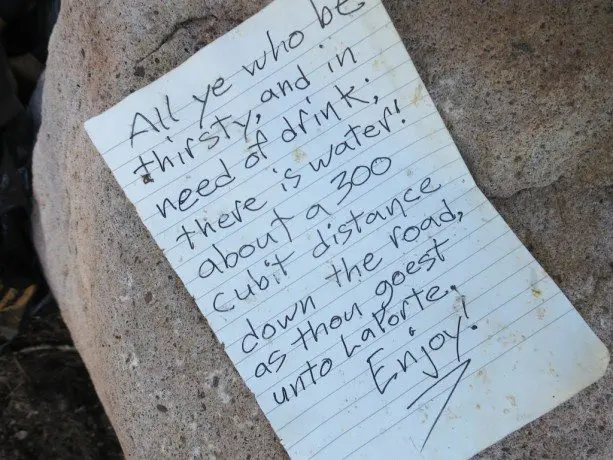 All ye who be
thirsty, and in
need of drink;
there is water!
about a 300
cubit distance
down the road,
as thou goest
unto LaPorte.
Enjoy!